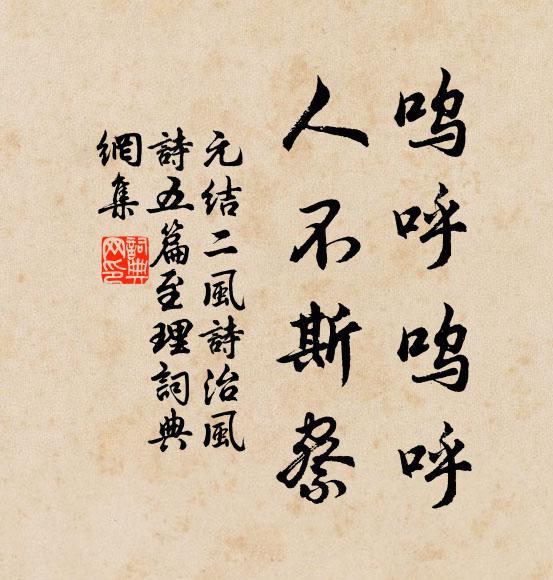 呜呼呜呼
人不斯察
元结二風詩治風
詩五篇至理詞典
網集
詞典网印